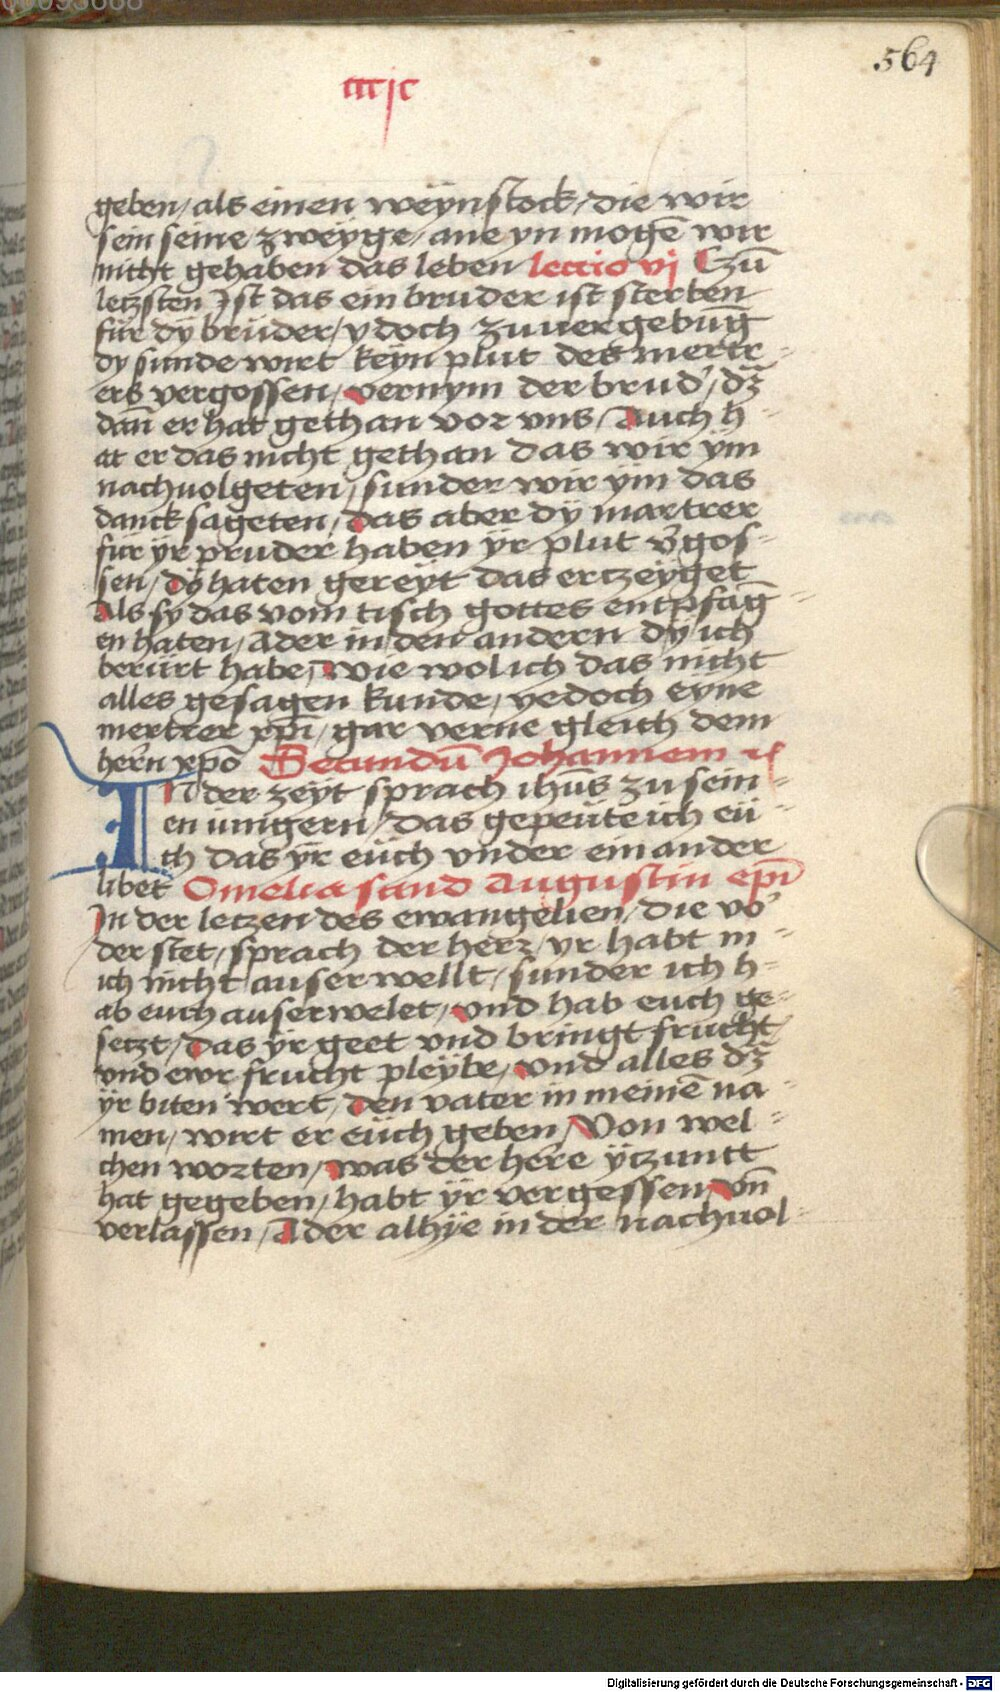 564
geben / als einen weÿnstock / die wir
sein seine zweÿge / ane yn mogē wir
nicht gehaben das leben lectio vj Czū
letzsten Ist das ein bruder ist sterben
für dÿ brüder / ydoch zuuergebūg
dy sunde wirt keÿn plut des mertr-
ers vergossen / vernym der brud' / dʒ
dañ er hat gethan vor vns / Auch h-
at er das nicht gethan das wir ÿm
nachuolgeten / sunder wir ÿm das
dancksageten / das aber dÿ martrer
für ÿr pruder haben ÿr plut v̄gos-
sen / dÿ haten gereÿt das ertzeÿget
Als sy das vom tisch gottes entpfāg-
en haten / Ader in den andern dÿ ich
berürt habe / wie wol ich das nicht
alles gesagen kunde / yedoch eyne
mertrer xp̄i / gar verne gleich dem
hern xp̄o Secundū Johannem
In der zeÿt sprach ihūs zu sein-
en iungern / das gepeüte ich eü-
ch das ÿr eüch vnder einander
libet Omelia sand Augustin ep̄i
In der letzen des ewangelien / die vo'
der stet / sprach der herr / yr habt m-
ich nicht auserwellt / sunder ich h-
ab euch auserwelet / vnd hab euch ge-
setzt / das ÿr geet vnd bringt frucht
vnd ewr frucht pleÿbe / vnd alles dʒ
ÿr biten wert / den vater in meinē na-
men / wirt er eüch geben / Von wel-
chen worten / was der herre ÿtzuntt
hat gegeben / habt ÿr vergessen / vn̄
verlassen / Ader alhÿe in der nachuol-
Digitalisierung gefördert durch die Deutsche Forschungsgemeinschaft - DFG